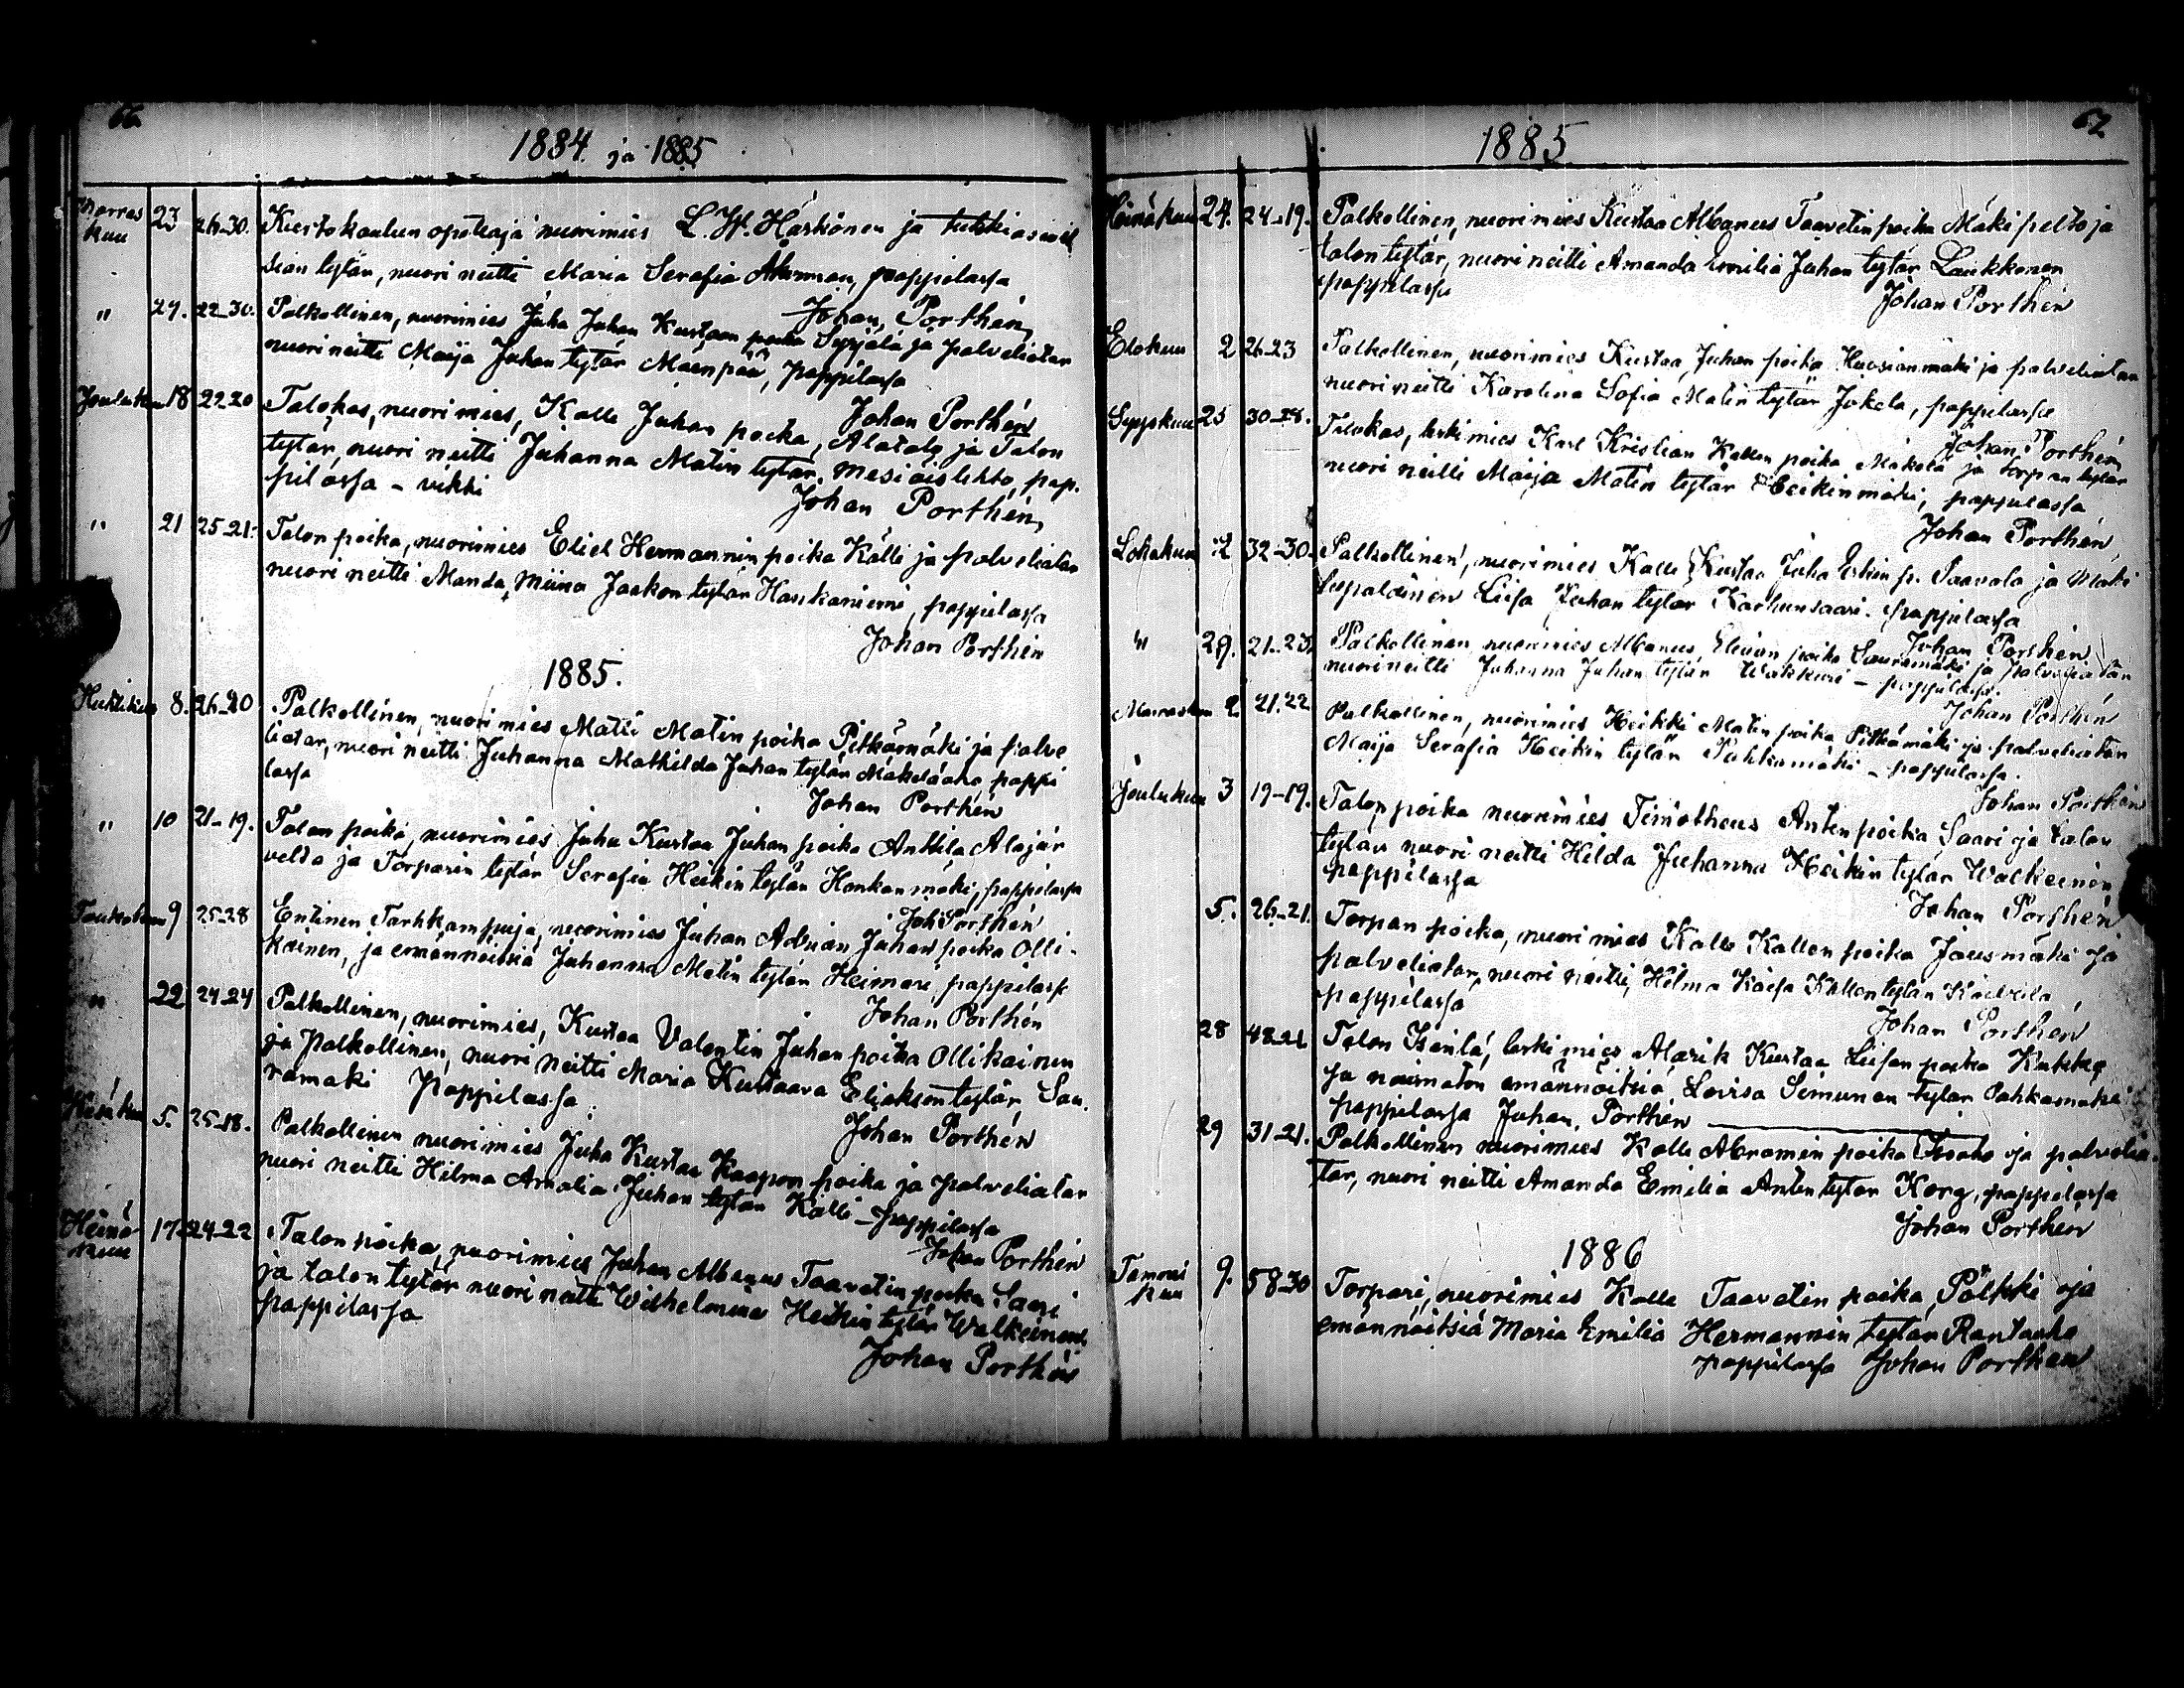 66
1884 ja 1885
Marras kuu 23 26-30. Kiertokoulun opettaja nuorimies L. W. Härkönen ja
sian tytär, nuori neitti Maria Serafia Åkerman, pappilassa
Johan Porthén
" 27. 22-30. Palkollinen, nuorimies Juha Juhan Kustaan poika Syrjälä ja palveliatar
nuori neitti Maija Juhan tytär Mäenpää, pappilassa
Johan Porthén
Joulukuu 18 22 20 Talokas, nuori mies, Kalle Juhan poika, Alatalo ja Talon
tytär, nuori neitti Juhanna Matin tytär Mesiäislehto, pap.
pilassa - vikki
Johan Porthén
" 21 25-21. Talon poika, nuorimies Eliel Hermannin poika Källi ja palveliatar
nuori neitti Manda Miina Jaakon tytär Haukaniemi, pappilassa
Johan Porthén
1885.
Huhtikuu 8. 26-20 Palkollinen, nuori mies Matti Matin poika Pitkämäki ja palve
liatar, nuori neitti Juhanna Mathilda Juhan tytär Mäkeläaho pappi
lassa
Johan Porthén
" 10 21-19. Talon poika, nuorimies Juha Kustaa Juhan poika Anttila Alajär
veltä ja Torparin tytär Serafia Heikin tytär Honkanmäki, pappilassa
Joh Porthén
Toukokuu 9 25-28 Entinen Tarhkampuja, nuorimies Juhan Adrian Juhan poika Olli-
kainen, ja emännöitsiä Juhanna Matin tytär Heimari, pappilassa
Johan Porthén
" 22 24-24 Palkollinen, nuorimies, Kustaa Valentin Juhan poika Ollikainen
ja Palkollinen, nuori neitti Maria Kustaava Eliaksen tytär, Sau.
ramäki pappilassa.
Johan Porthén
Kesäkuu 5. 25-18. Palkollinen nuorimies Juha Kustaa Kaapon poika ja palveliatar
nuori neitti Hilma Amalia Juhan tytär Källi - pappilassa
Johan Porthén
Heinä- kuu 17 24-22 Talon poika, nuorimies Juhan Albanus Taavetin poika Saari
ja talon tytär nuori neitti Wilhelmina Heikin tytär Walkeinen
pappilassa
Johan Porthén
67
1885
Heinäkuu 24. 24-19. Palkollinen, nuorimies Kustaa Albanus Taavetin poika Mäkipelto ja
talon tytär, nuori neitti Amanda Emilia Juhan tytär Laukkonen
pappilassa
Johan Porthén
Elokuu 2 26-23 Palkollinen, nuorimies Kustaa Juhan poika Kuosianmäki ja palveliatar
nuori neitti Karolina Sofia Matin tytär Jokela, pappilassa
Johan Porthén
Syyskuu 25 30-28. Talokas, leskimies Karl Kristian Kallen poika Mäkelä ja torpan tytär
nuori neitti Maija Matin tytär Heikinmäki, pappilassa
Johan Porthén
Lokakuu 2 32-30. Palkollinen, nuorimies Kalle Kustaa Juha Erkin p. Saarala ja Mäki
tupalainen Liisa Juhan tytär Karhunsaari. pappilassa
Johan Porthén
" 29. 21-23. Palkollinen nuorimies Albanus Elian poika Sauramäki ja palveliatar
nuori neitti Juhanna Juhan tytär Wakkuri - pappilassa.
Johan Porthén
Marraskuu 2. 21.22 Palkollinen, nuorimies Heikki Matin poika Pitkämäki ja palveliatar
Maija Serafia Heikin tytär Pahkamäki - pappilassa.
Johan Porthén
Joulukuu 3 19-19. Talon poika nuorimies Timotheus Antin poika Saari ja talon
tytär nuori neitti Hilda Juhanna Heikin tytär Walkeinen
pappilassa
Johan Porthén
5. 26-21. Torpan poika, nuori mies Kalle Kallen poika Jausmäki ja
palveliatar, nuori neitti, Hilma Kaisa Kallen tytär
pappilassa
Johan Porthén
28 48-21 Talon Isäntä, leskimies Alarik Kustaa Liisan poika Kukko
ja naimaton emännöitsiä, Lovisa Simunan tytär Pahkamäki
pappilassa Juhan, Porthén
29 31-21. Palkollinen nuorimies Kalle Abramin poika Isoaho ja palvelia-
tar, nuori neitti Amanda Emilia Antin tytär Korg, pappilassa
Johan Porthén
1886
Tammi kuu 9. 58-30 Torpari, nuorimies Kalle Taavetin poika, Pälkki ja
emännöitsiä Maria Emilia Hermannin tytär Rantaaho
pappilassa Johan Porthén